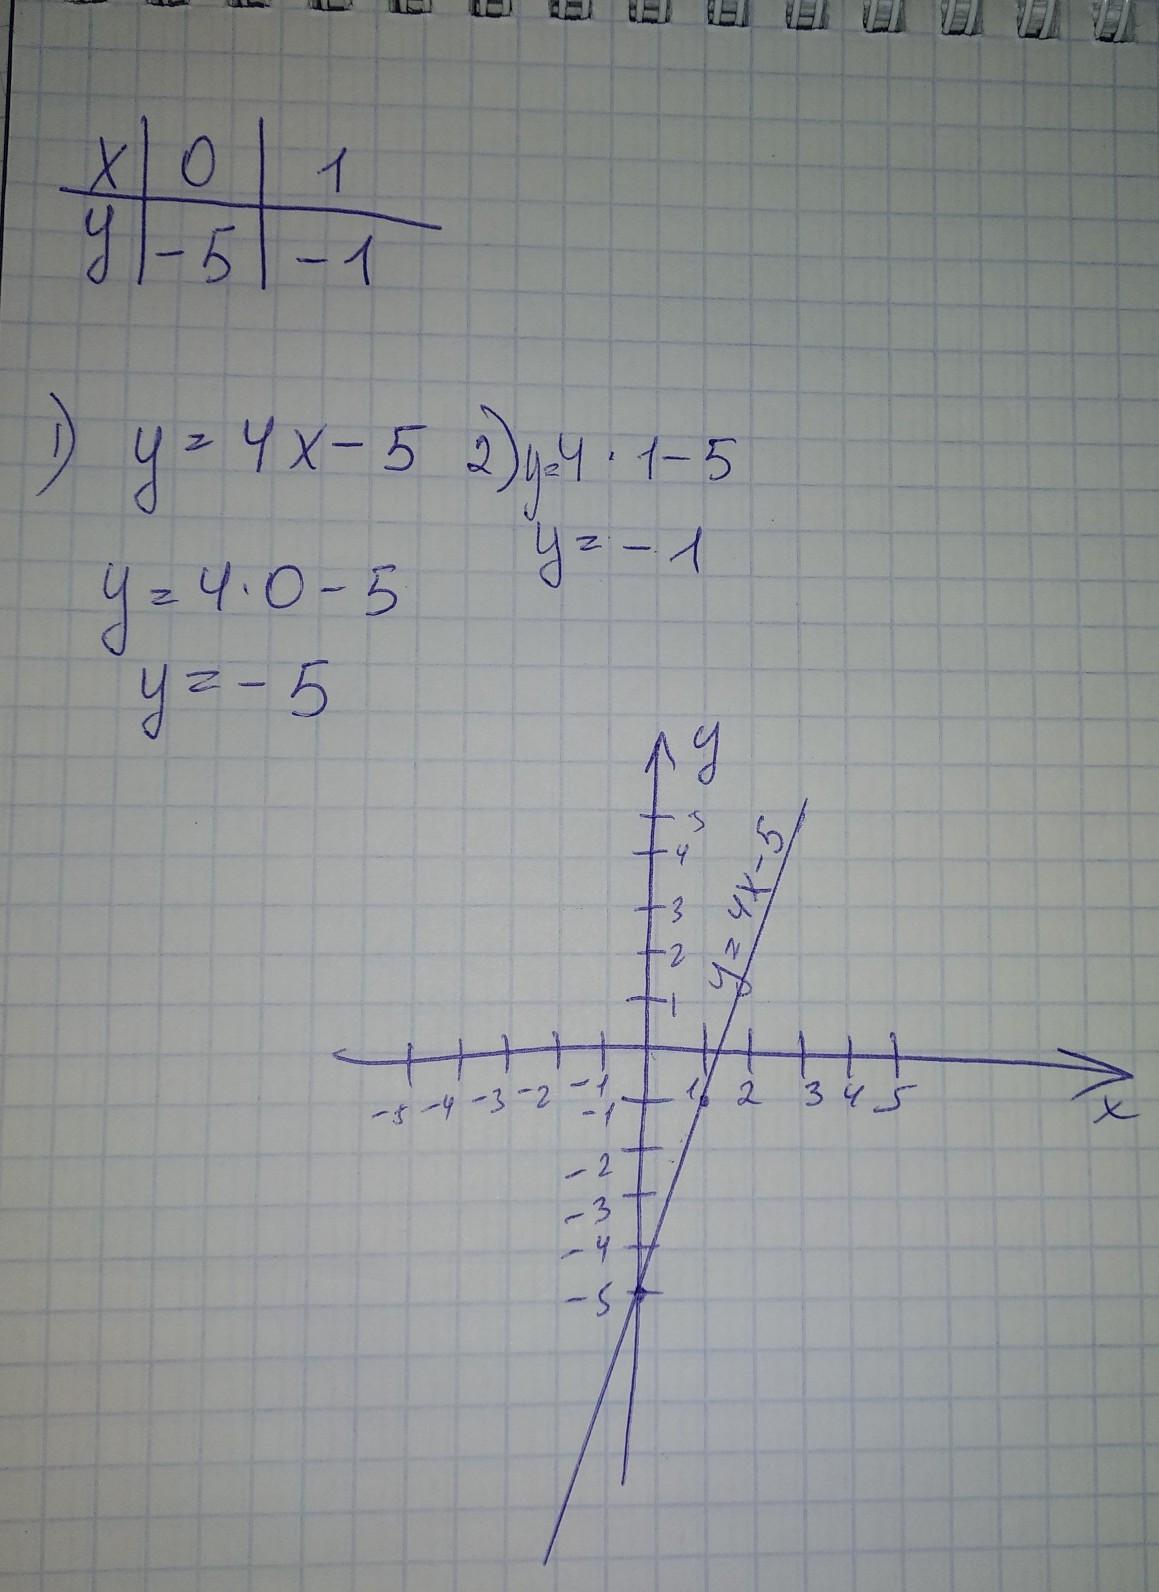 x 0 1
y -5 -1
1) y = 4x - 5 2) y = 4 · 1 - 5
y = -1
y = 4 · 0 - 5
y = -5
y
5
4
3
2
1
y = 4x - 5
-5 -4 -3 -2 -1 1 2 3 4 5
x
-1
-2
-3
-4
-5